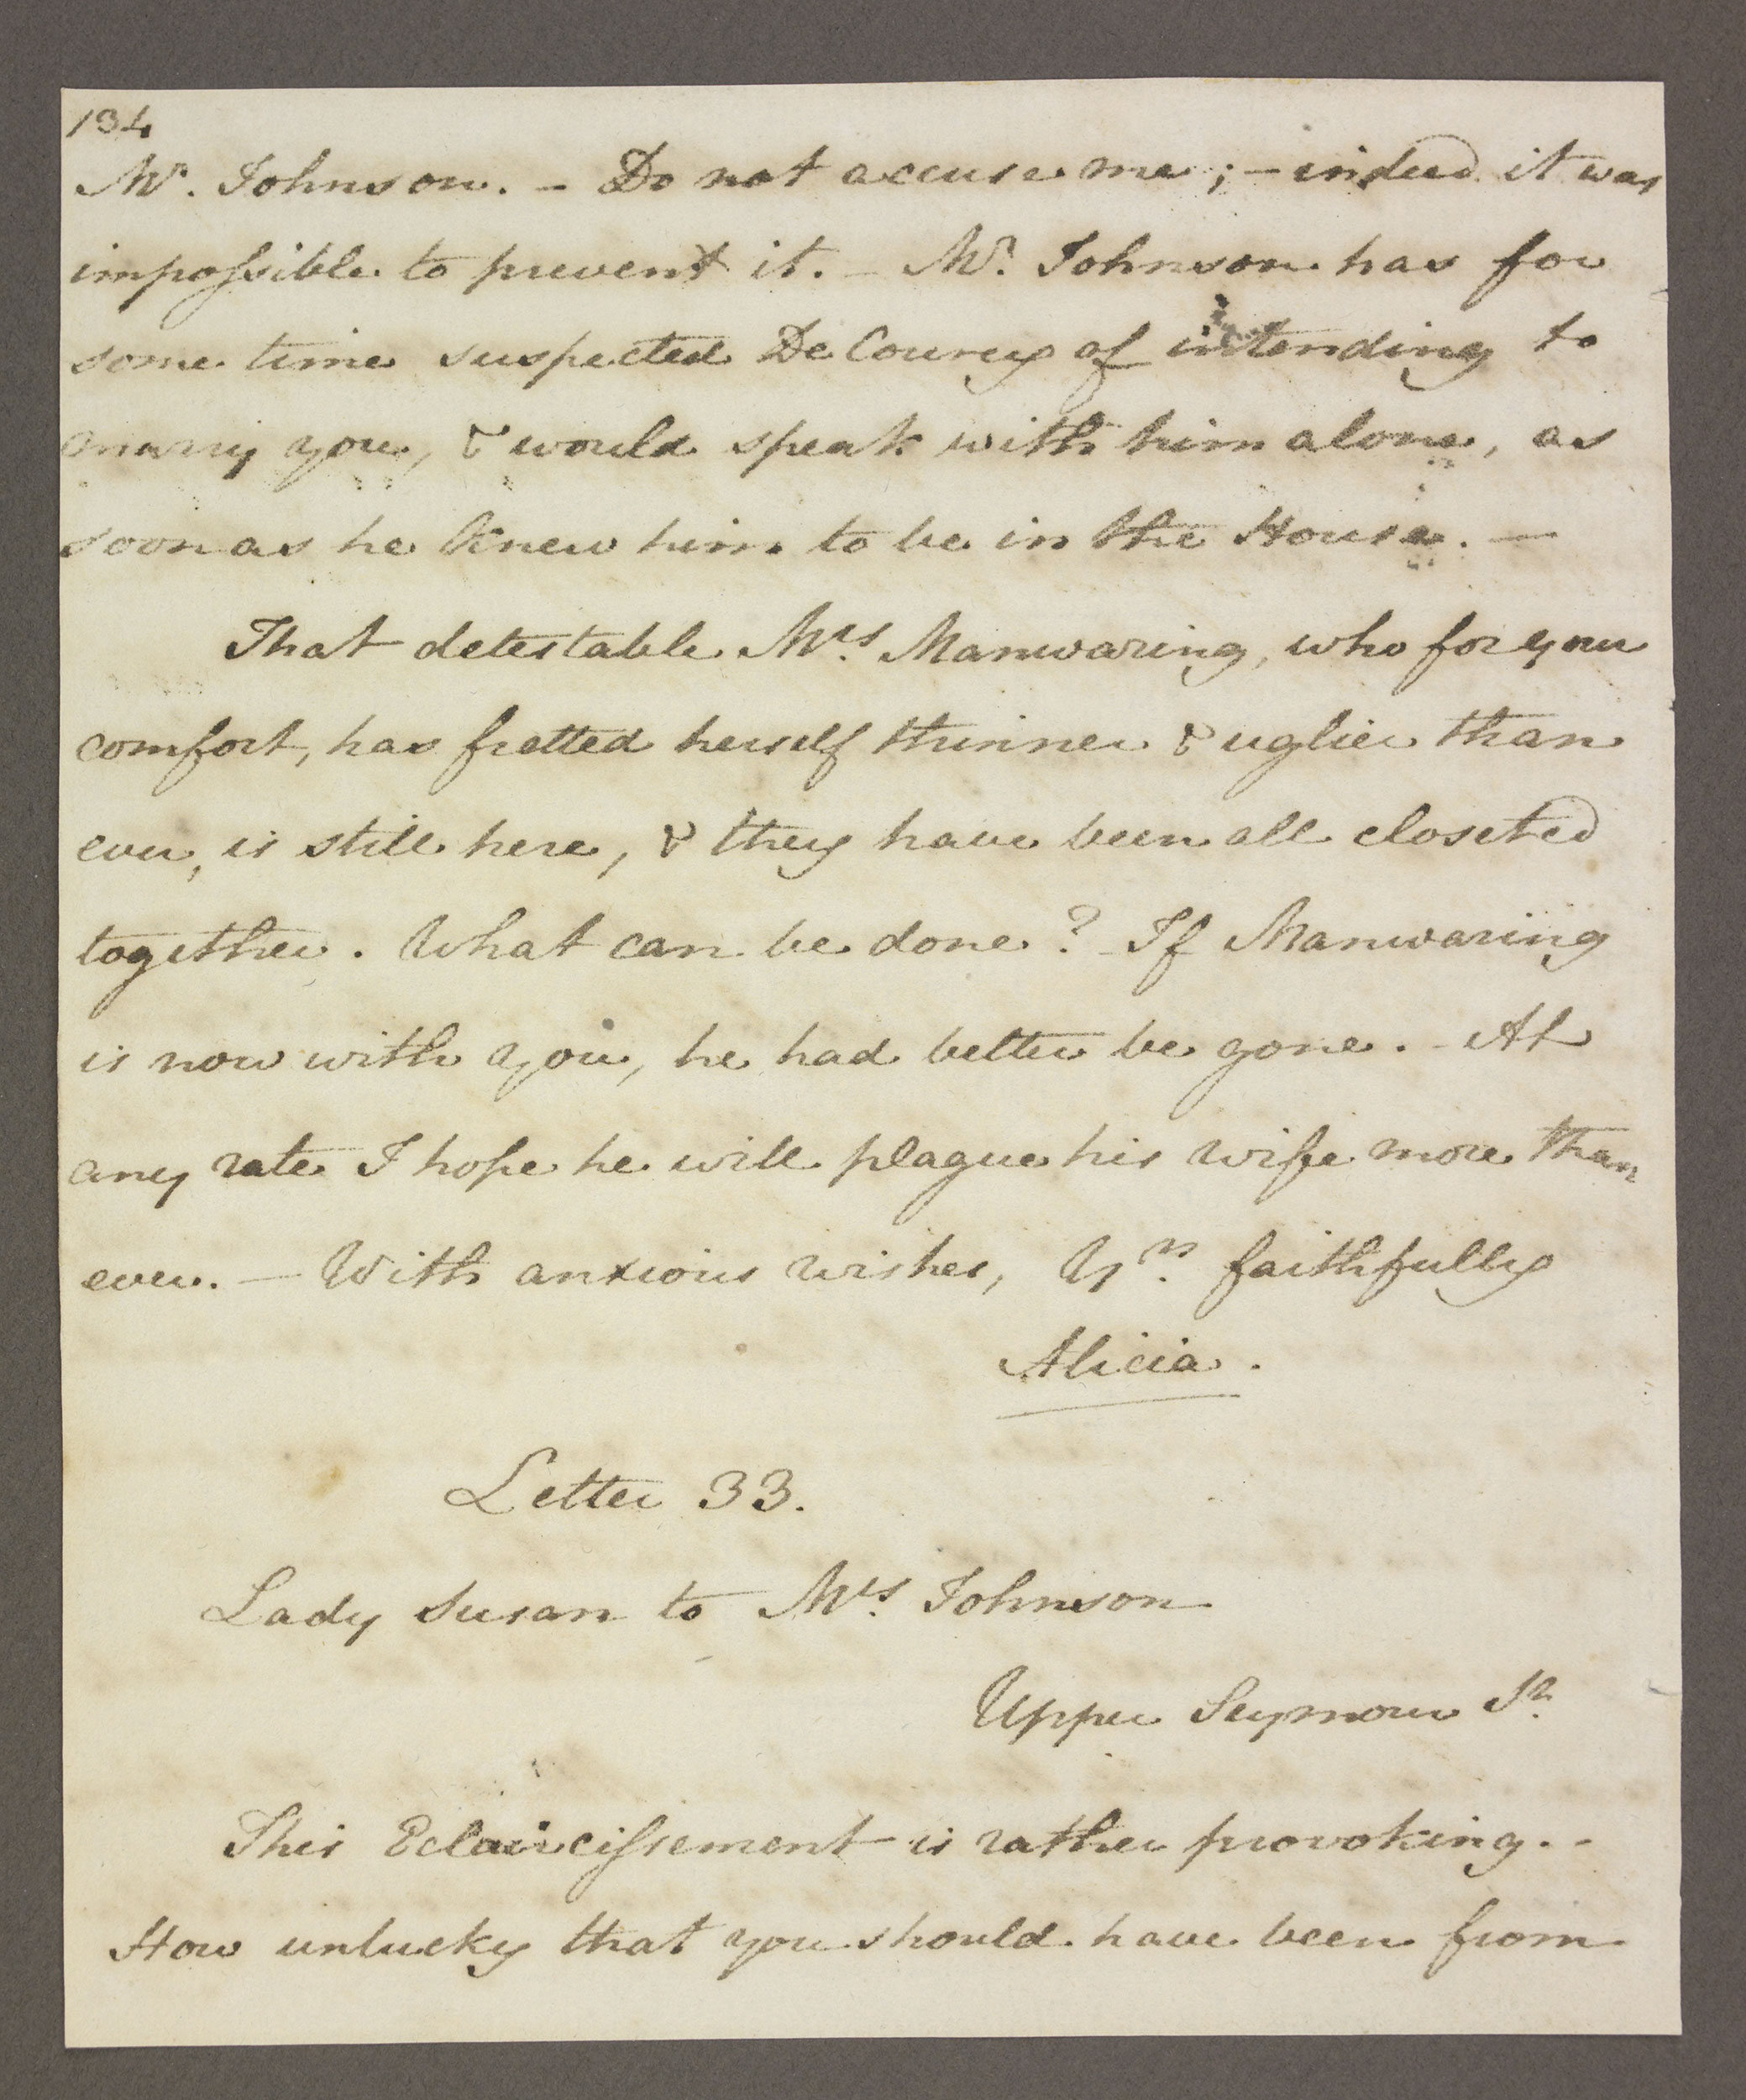 134
Mr. Johnson. – Do not accuse me; – indeed it was
impossible to prevent it. – Mr. Johnson has for
some time suspected De Courcy of intending to
marry you, & would speak with him alone, as
soon as he knew him to be in the House. –
That detestable Mrs. Manwaring, who for your
comfort, has fretted herself thinner & uglier than
ever, is still here, & they have been all closeted
together. What can be done? – If Manwaring
is now with you, he had better be gone. – At
any rate I hope he will plague his wife more than
ever. – With anxious wishes, Yrs. faithfully
Alicia.
Letter 33.
Lady Susan to Mrs. Johnson
Upper Seymour St.
This Eclaircissement is rather provoking. –
How unlucky that you should have been from